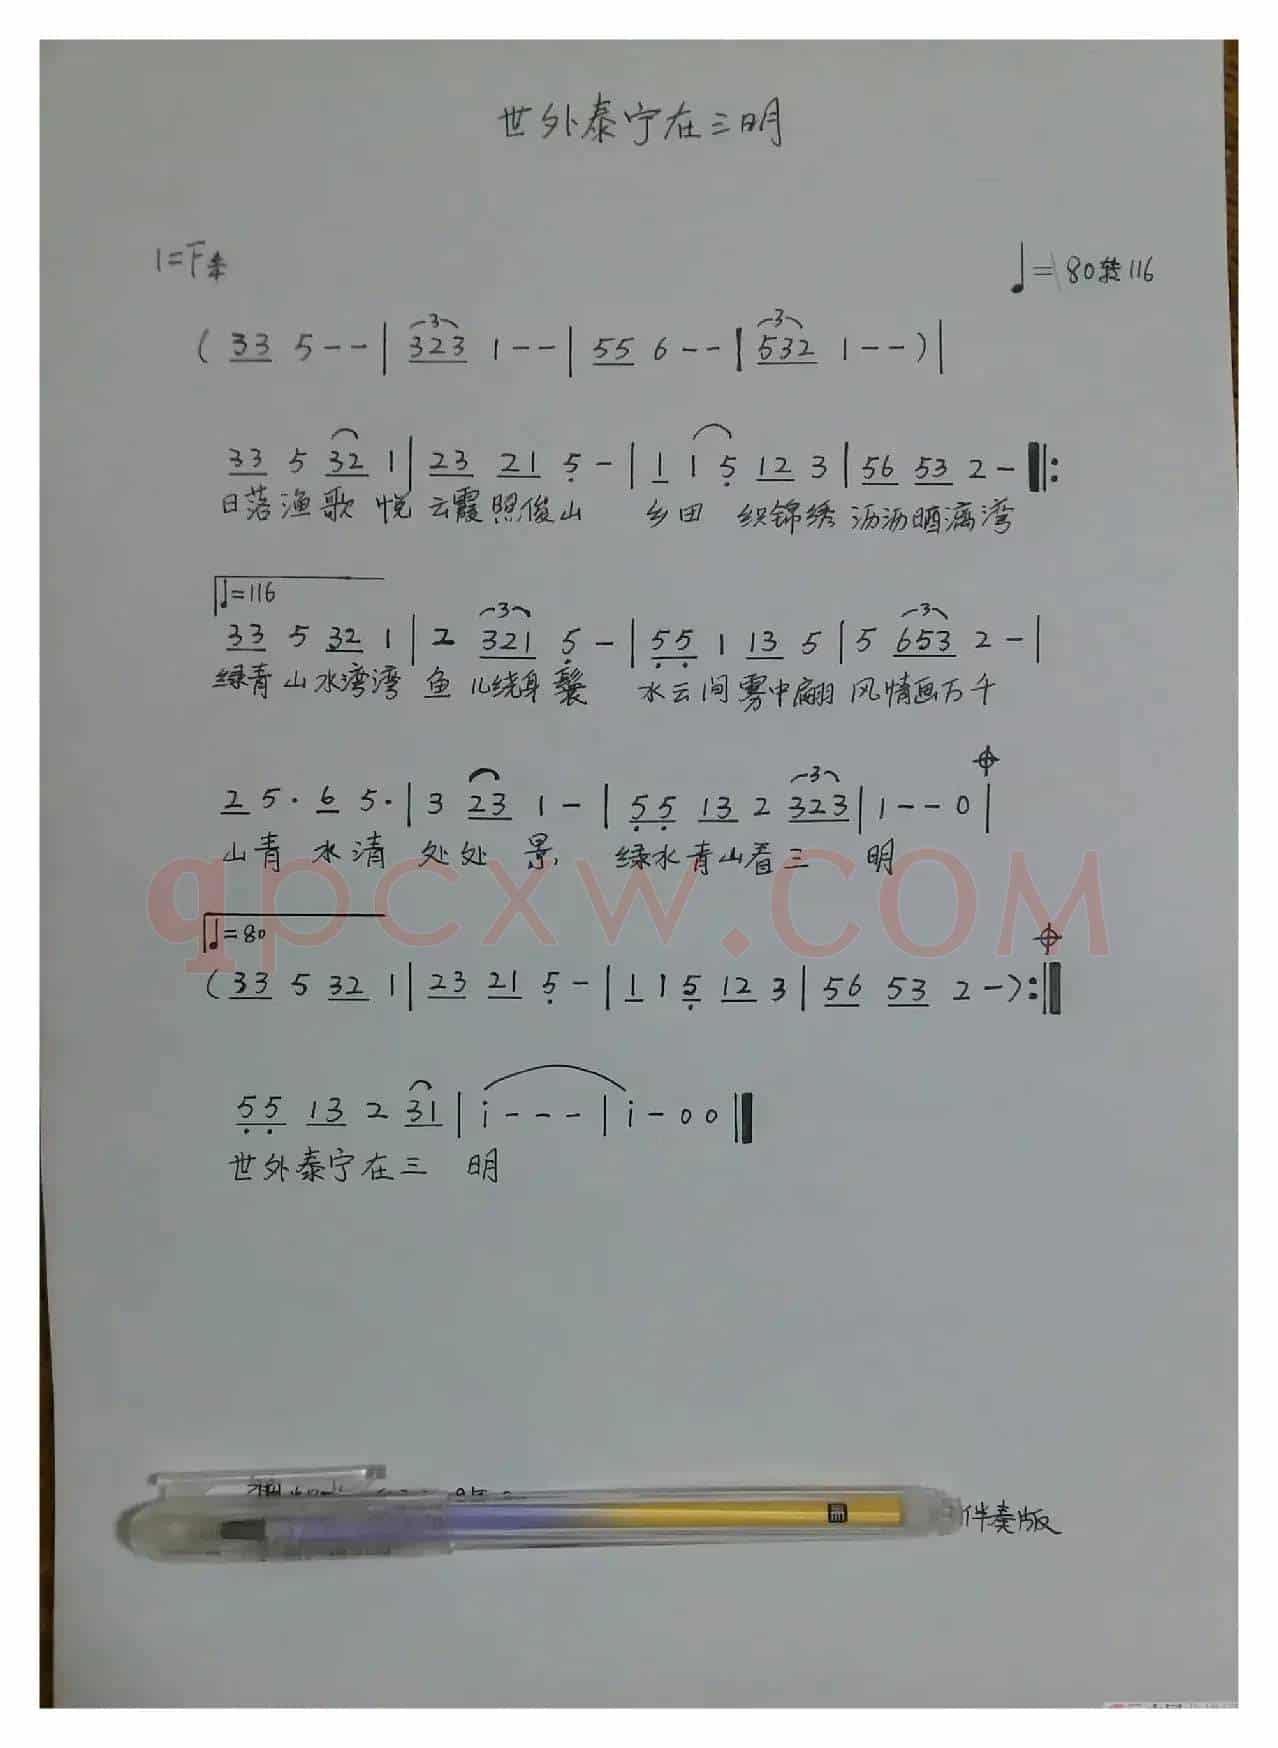 世外泰宁在三明
1=F条
♩=80转116
( 33 5 - - | 323 1 - - | 55 6 - - | 532 1 - - ) |
33 5 32 1 | 23 21 5 - | 1 1 5 12 3 | 56 53 2 - ‖:
日落渔歌 悦 云霞照俊山 乡田 织锦绣 沥沥晒漓湾
♩=116
33 5 32 1 | 2 321 5 - | 55 1 13 5 | 5 653 2 - |
绿青山水湾湾 鱼儿绕身鬟 水云间雾中翩 风情画万千
2 5 · 6 5 · | 3 23 1 - | 55 13 2 323 | 1 - - 0 |
山青 水清 处处 景 绿水青山看三 明
qpcxw.COM
♩=80
( 33 5 32 1 | 23 21 5 - | 1 1 5 12 3 | 56 53 2 - ) :‖
55 13 2 31 | i - - - | i - 0 0 ‖
世外泰宁在三 明
伴奏版